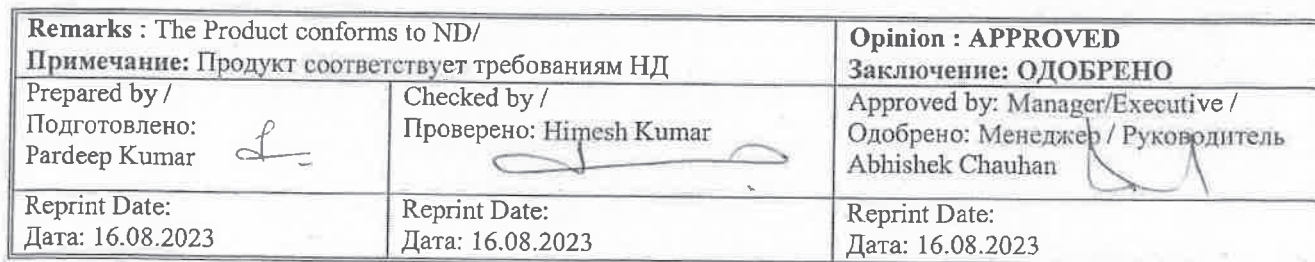 Remarks : The Product conforms to ND/
Примечание: Продукт соответствует требованиям НД
Opinion : APPROVED
Заключение: ОДОБРЕНО
Prepared by /
Подготовлено:
Pardeep Kumar
Checked by /
Проверено: Himesh Kumar
Approved by: Manager/Executive /
Одобрено: Менеджер / Руководитель
Abhishek Chauhan
Reprint Date:
Дата: 16.08.2023
Reprint Date:
Дата: 16.08.2023
Reprint Date:
Дата: 16.08.2023